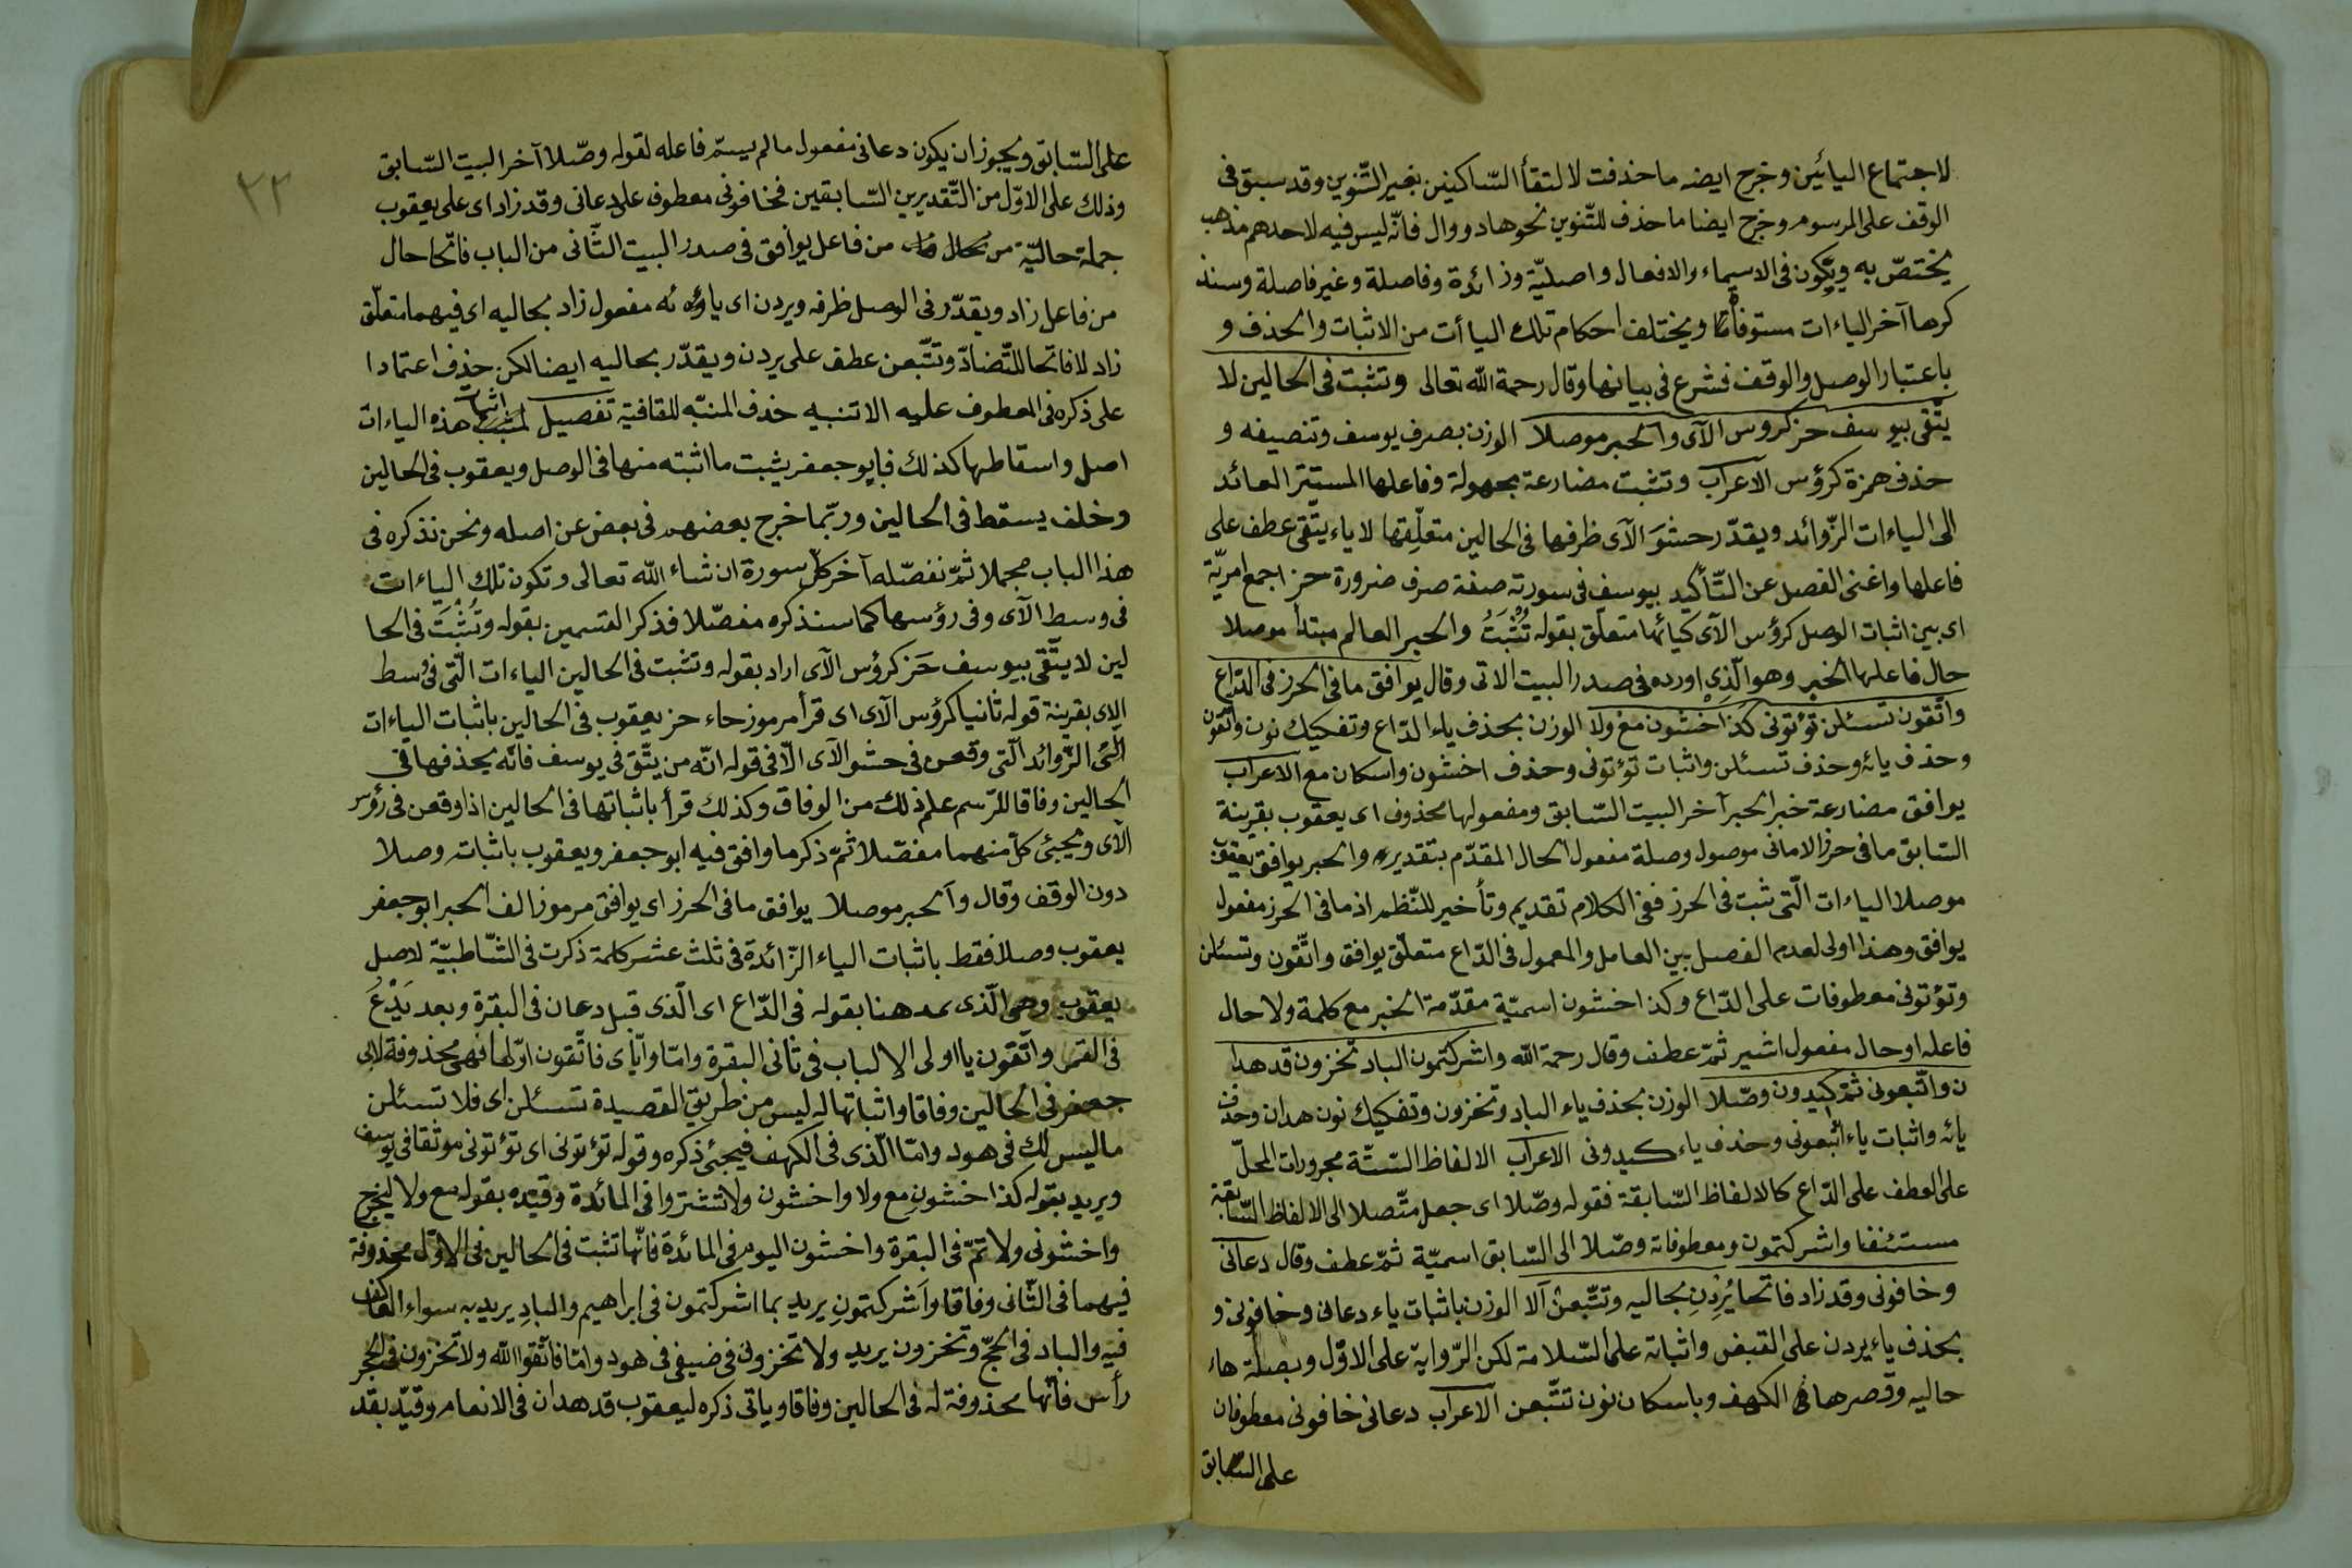 لاجتماع اليائين وخرج ايضه ما حذفت لالتقأ السّاكنين بغير التّنوين وقد سبق فى
الوقف على المرسوم وخرج ايضا ما حذف للتّنوين نحو هاد ووال فانّه ليس فيه لاحدهم مذهب
يختصّ به ويكون فى الاسماء والافعال واصليّة وزائدة وفاصلة وغير فاصلة وسنذ
كرها آخر الياءات مستوفاة ويختلف احكام تلك الياأت من الاثبات والحذف و
باعتبار الوصل والوقف فشرع فى بيانها وقال رحمة الله تعالى وتثبت فى الحالين لا
يتّقى بيوسف حز كروس الآى والحبر موصلا الوزن بصرف يوسف وتنصيفه و
حذف همزة كرؤس الاعراب وتثبت مضارعة مجهولة وفاعلها المستتر العائد
الى الياءات الزّوائد ويقدّر حشو الآى ظرفها فى الحالين متعلّقها لا ياء يتّقى عطف على
فاعلها واغنى الفصل عن التّأكيد بيوسف فى سورته صفة صرف ضرورة حز اجمع امريّة
اى بين اثبات الوصل كرؤس الآى كيائها متعلّق بقوله تُثْبَتُ والحبر العالم مبتدأ موصلا
حال فاعلها الخبر وهو الّذى اورده فى صدر البيت الاتى وقال يوافق ما فى الحرز فى الدّاع
واتّقون تسئلن تؤتونى كذا اخشون مع ولا الوزن بحذف ياء الدّاع وتفكيك نون واتّقون
وحذف يائه وحذف تسئلن واثبات تؤتونى وحذف اخشون واسكان مع الاعراب
يوافق مضارعة خبر الحبر آخر البيت السّابق ومفعولها محذوف اى يعقوب بقرينة
السّابق ما فى حرز الامانى موصول وصلة مفعول الحال المقدّم بتقديره والحبر يوافق يعقوب
موصلا الياءات الّتى ثبت فى الحرز ففى الكلام تقديم وتأخير للنّظم اذ ما فى الحرز مفعول
يوافق وهذا اولى لعدم الفصل بين العامل والمعمول فى الدّاع متعلّق يوافق واتّقون وتسئلن
وتؤتونى معطوفات على الدّاع وكذا اخشون اسميّة مقدّمة الخبر مع كلمة ولا حال
فاعله او حال مفعول اشير ثمّ عطف وقال رحمة الله واشركتمون الباد تخزون قد هدا
ن واتّبعونى ثمّ كيدون وصّلا الوزن بحذف ياء الباد وتخزون وتفكيك نون هدان وحذف
يائه واثبات ياء اتّبعونى وحذف ياء كيدونى الاعراب الالفاظ السّتّة مجرورات المحلّ
على العطف على الدّاع كالالفاظ السّابقة فقوله وصّلا اى جعل متّصلا الى الالفاظ السّابقة
مستئنفا واشركتمون ومعطوفاته وصّلا الى السّابق اسميّة ثمّ عطف وقال دعانى
وخافونى وقد زاد فاتحا يُرِدْنِ بحاليه وتتّبعن آلا الوزن باثبات ياء دعانى وخافونى و
بحذف ياء يردن على القبض واثباته على السّلامة لكن الرّواية على الاوّل وبصلة هاء
حاليه وقصرها فى الكهف وباسكان نون تتّبعن الاعراب دعانى خافونى معطوفان
على السّابق
٢٢
على السّابق ويجوز ان يكون دعانى مفعول ما لم يسمّ فاعله لقوله وصّلا آخر البيت السّابق
وذلك على الاوّل من التّقديرين السّابقين فخافونى معطوف على دعانى وقد زاد اى على يعقوب
جملة حاليّة من فاعل يوافق فى صدر البيت الثّانى من الباب فاتحا حال
من فاعل زاد ويقدّر فى الوصل ظرفه ويردن اى ياؤه مفعول زاد بحاليه اى فيهما متعلّق
زاد لا فاتحا للتّضادّ وتتّبعن عطف على يردن ويقدّر بحاليه ايضا لكن حذف اعتمادا
على ذكره فى المعطوف عليه الا تنبيه حذف المنبّه للقافية تفصيل اثبات هذه الياءات
اصل واسقاطها كذلك فابو جعفر يثبت ما اثبته منها فى الوصل ويعقوب فى الحالين
وخلف يسقط فى الحالين وربّما خرج بعضهم فى بعض عن اصله ونحن نذكره فى
هذا الباب مجملا ثمّ نفصّله آخر كلّ سورة ان شاء الله تعالى وتكون تلك الياءات
فى وسط الآى وفى رؤسها كما سنذكره مفصّلا فذكر القسمين بقوله وتُثْبَت فى الحا
لين لا يتّقى بيوسف حَز كرؤس الآى اراد بقوله وتثبت فى الحالين الياءات الّتى فى وسط
الاى بقرينة قوله ثانيا كرؤس الآى اى قرأ مرموز حاء حز يعقوب فى الحالين باثبات الياءات
الّتى الزّوائد الّتى وقعن فى حشو الآى الّا فى قوله انّه من يتّق فى يوسف فانّه يحذفها فى
الحالين وفاقا للرّسم علم ذلك من الوفاق وكذلك قرأ باثباتها فى الحالين اذا وقعن فى رؤس
الآى ويجيئ كلّ منهما مفصّلا ثمّ ذكر ما وافق فيه ابو جعفر ويعقوب باثباته وصلا
دون الوقف وقال وآلحبر موصلا يوافق ما فى الحرز اى يوافق مرموز الف الحبر ابو جعفر
يعقوب وصلا فقط باثبات الياء الزّائدة فى ثلث عشر كلمة ذكرت فى الشّاطبيّة لاصل
يعقوب وهى الّذى عد هنا بقوله فى الدّاع اى الّذى قبل دعان فى البقرة وبعد يَدْعُ
فى القمر واتّقون يا اولى الالباب فى ثانى البقرة وامّا وآيّاى فاتّقون اوّلها فهى محذوفة لابى
جعفر فى الحالين وفاقا واثباتها له ليس من طريق القصيدة تسئلن اى فلا تسئلن
ما ليس لك فى هود وامّا الّذى فى الكهف فيجئ ذكره وقوله تؤتونى اى تؤتونى موثقا فى يوسف
ويريد بقوله كذا اخشون مع ولا واخشون ولا تشتروا فى المائدة وقيّده بقوله مع ولا ليخرج
واخشونى ولاتمّ فى البقرة واخشون اليوم فى المائدة فانّها تثبت فى الحالين فى الاوّل محذوفة
فيهما فى الثّانى وفاقا واَشركتمونِ يريد بما اشركتمون فى إبراهيم والبادِ يريد به سواء العاكف
فيه والباد فى الحجّ وتخزون يريد ولا تخزون فى ضيفى فى هود وامّا فاتّقوا الله ولا تخزون فى الحجر
رأس فانّها محذوفة له فى الحالين وفاقا وياتى ذكره ليعقوب قد هدان فى الانعام وقيّد بقد